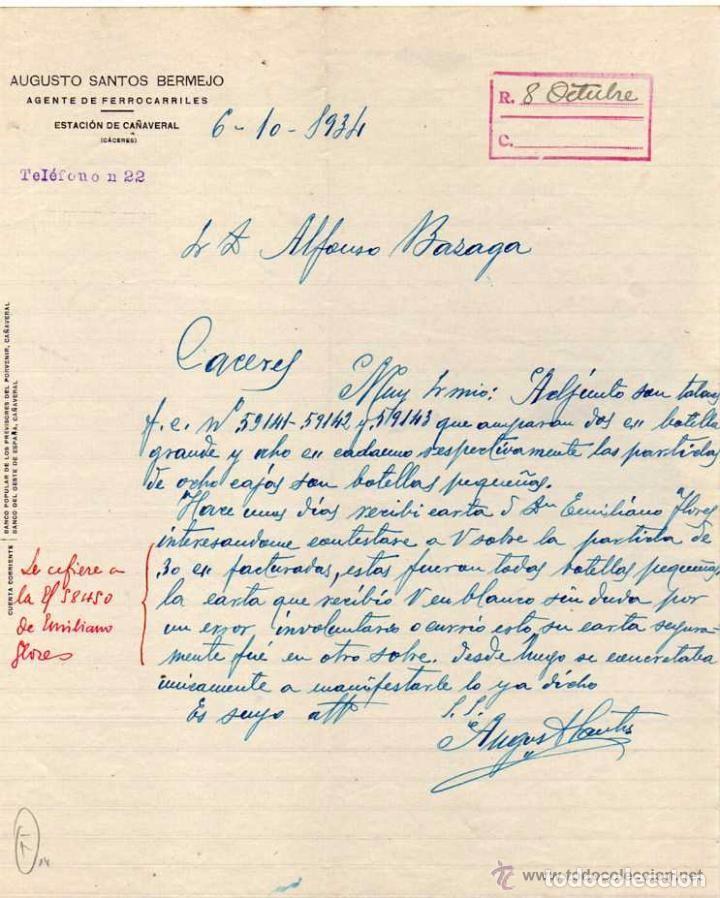 AUGUSTO SANTOS BERMEJO
AGENTE DE FERROCARRILES
ESTACIÓN DE CAÑAVERAL
(CÁCERES)
Teléfono n 22
R. 8 Octubre
C.
6-10-1934
Sr D Alfonso Bazaga
Caceres
Muy Sr mio: Adjunto son talones
f.c. nº 59141-59142 y 59143 que amparan dos c/ botella
grande y ocho c/ cada uno respectivamente las partidas
de ocho cajas son botellas pequeñas.
Hace unos días recibi carta d Dn Emiliano Flores
interesandome contestare a V sobre la partida de
30 c/ facturadas, estas fueron todas botellas pequeñas,
la carta que recibió V en blanco sin duda por
un error involuntario ocurrio esto, su carta segura-
mente fué en otro sobre. desde luego se concretaba
unicamente a manifestarle lo ya dicho
Es suyo atto
S.S.
Augusto Santos
Se refiere a
la E/ 58450
de Emiliano
Flores
CUENTA CORRIENTE
BANCO POPULAR DE LOS PREVISORES DEL PORVENIR, CAÑAVERAL
BANCO DEL OESTE DE ESPAÑA, CAÑAVERAL
www.todocoleccion.net
todocoleccion